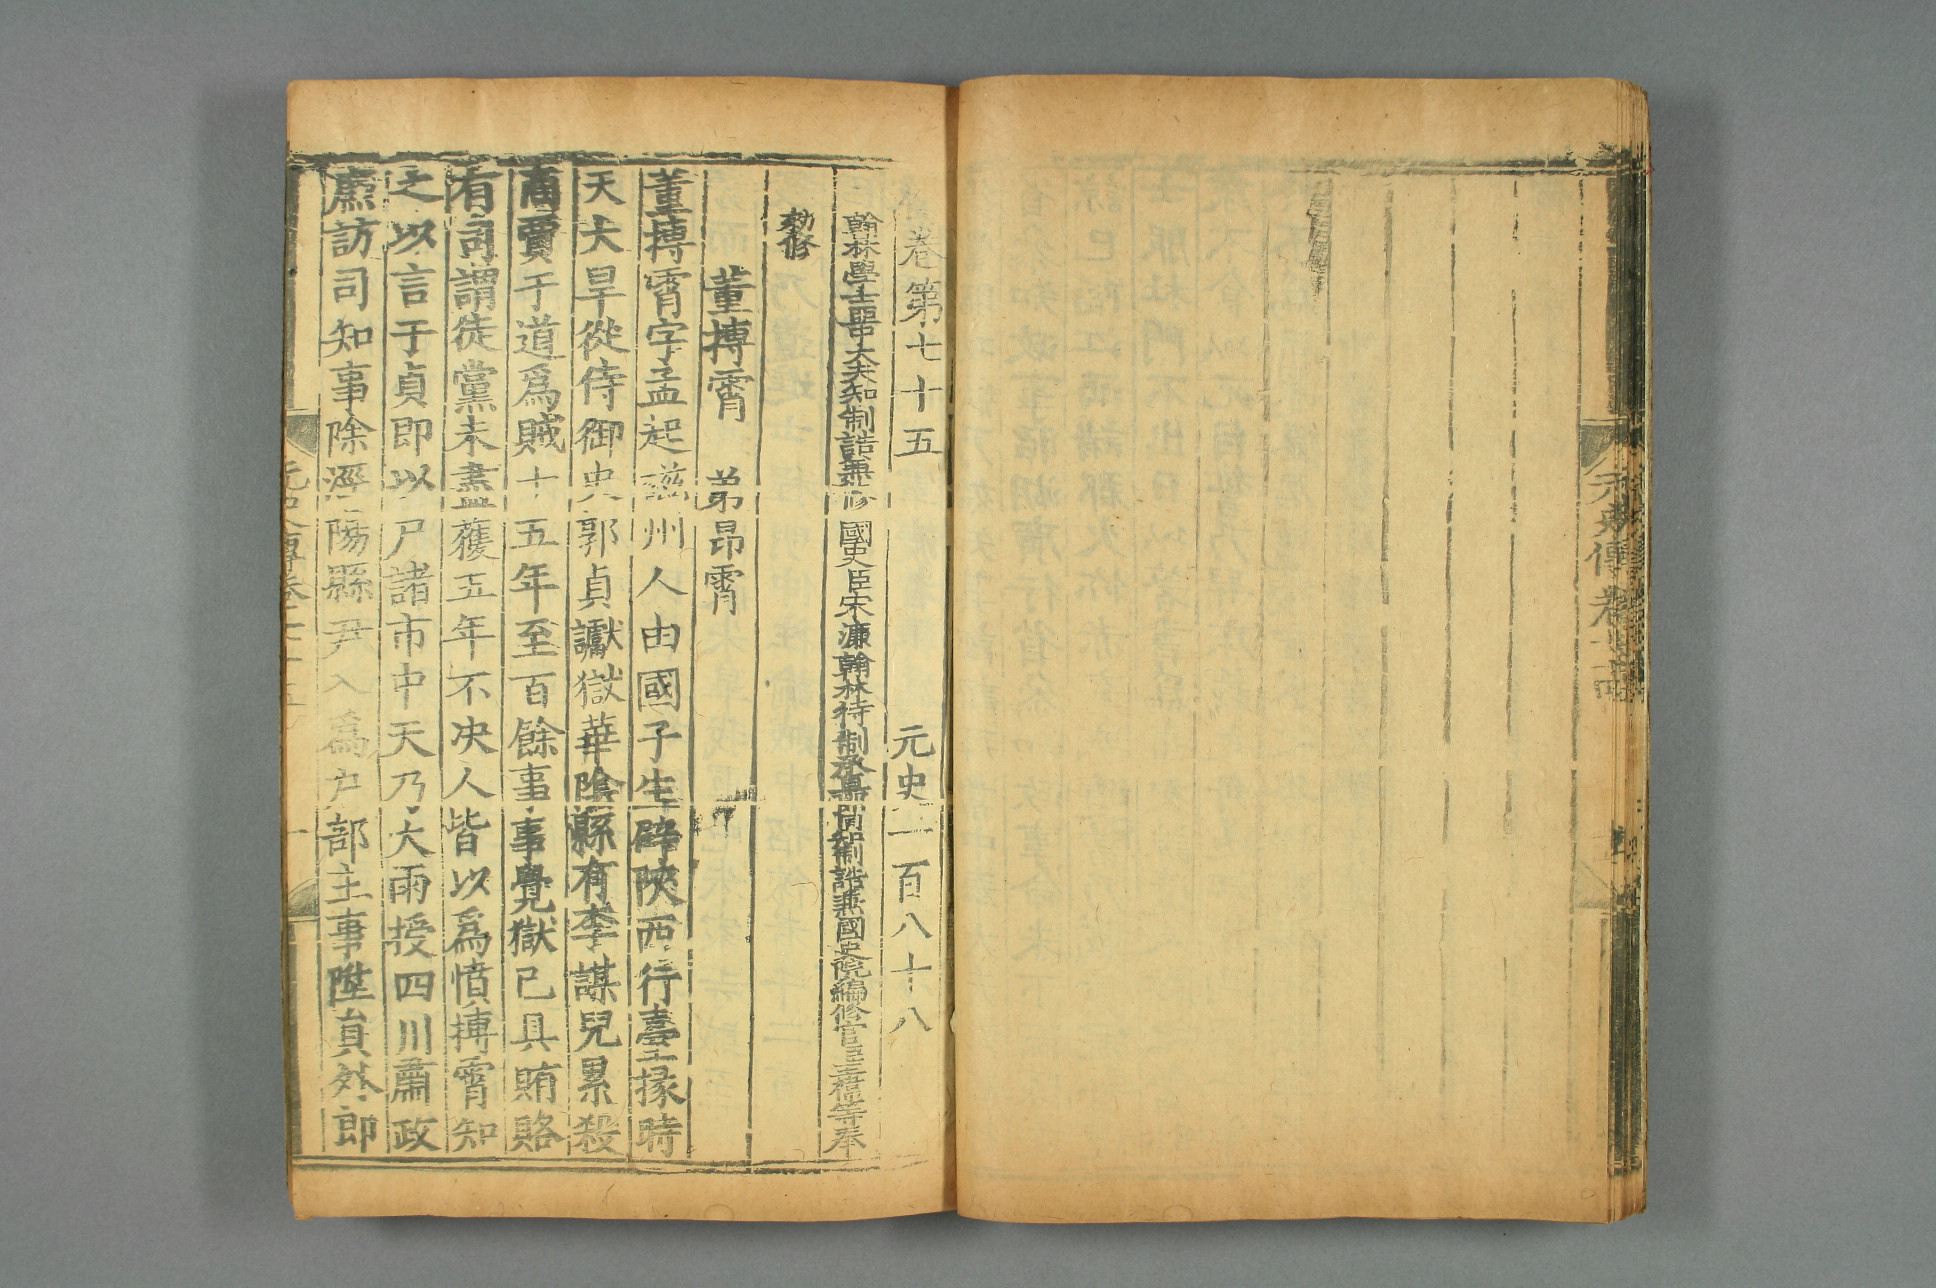 元史傳卷七十四
卷第七十五　元史一百八十八
翰林學士亞中大夫知制誥兼修　國史臣宋濂翰林待制承直郎同知制誥兼國史院編修官臣王禕等奉
勑修
董摶霄　弟昂霄
董摶霄字孟起磁州人由國子生辟陝西行臺掾時
天大旱從侍御史郭貞讞獄華陰縣有李謀兒累殺
商賈于道爲賊十五年至百餘事事覺獄已具賄賂
有司謂徒黨未盡獲五年不决人皆以爲憤摶霄知
之以言于貞即以尸諸市中天乃大雨授四川肅政
廉訪司知事除涇陽縣尹入爲户部主事陞員外郎
元史傳卷七十五　一